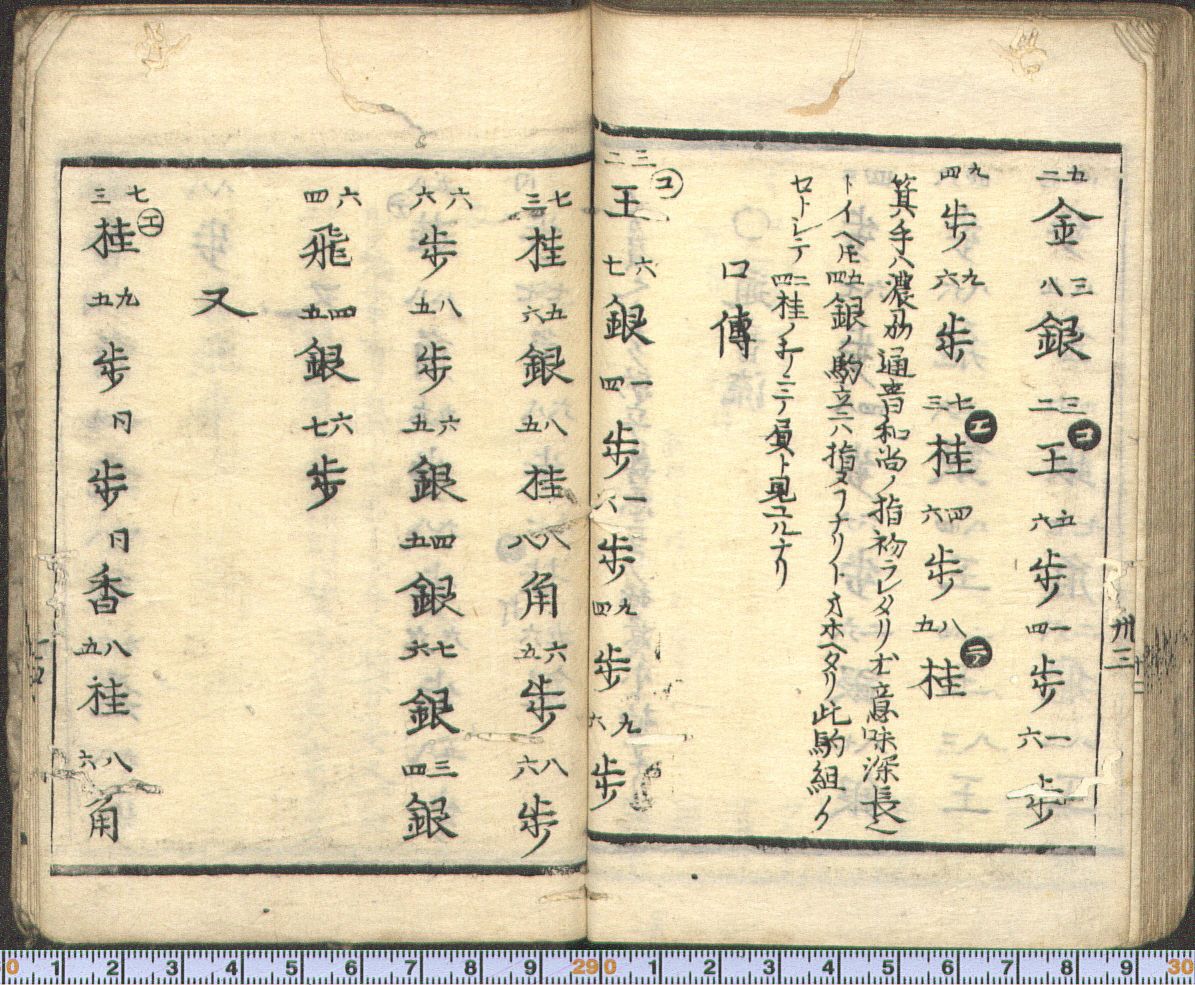 五二金 三八銀 三二王 コ 五六歩 一四歩 一六歩
九四歩 九六歩 七三桂 エ 四六歩 八五桂 テ
箕手ハ濃州通書和尚ノ指初ラレタリ尤意味深長
トイヘ𪜈五四銀ノ駒立ニハ指タラナリトオホヘタリ此駒組
二四桂ノ手ニテ員ト見ユルナリ
口傳
三二王 コ 六七銀 一四歩 一六歩 九四歩 九六歩
七三桂 五六銀 八五桂 六八角 六五歩 八六歩
六六歩 八五歩 六五銀 四五銀 七六銀 三四銀
六四飛 四五銀 六七歩
又
七三桂 エ 九五歩 同歩 同香 八五桂 八六角
卅三
0 1 2 3 4 5 6 7 8 9 29 0 1 2 3 4 5 6 7 8 9 30